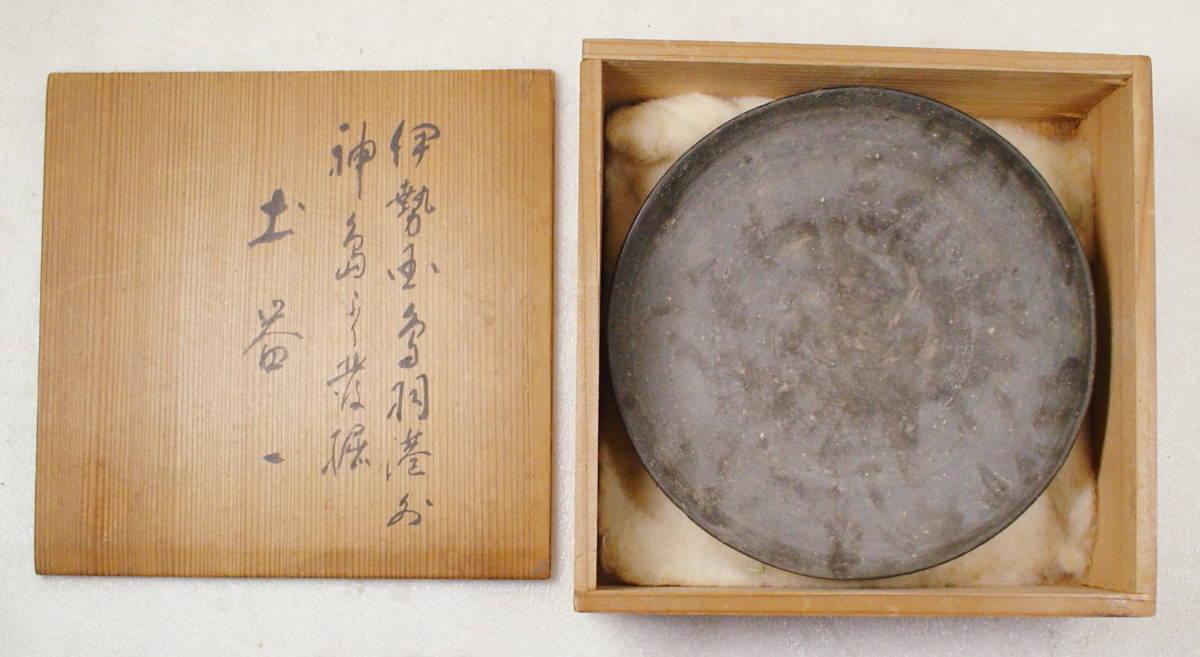 伊勢国鳥羽港外
神島ヨリ発掘
土器 一